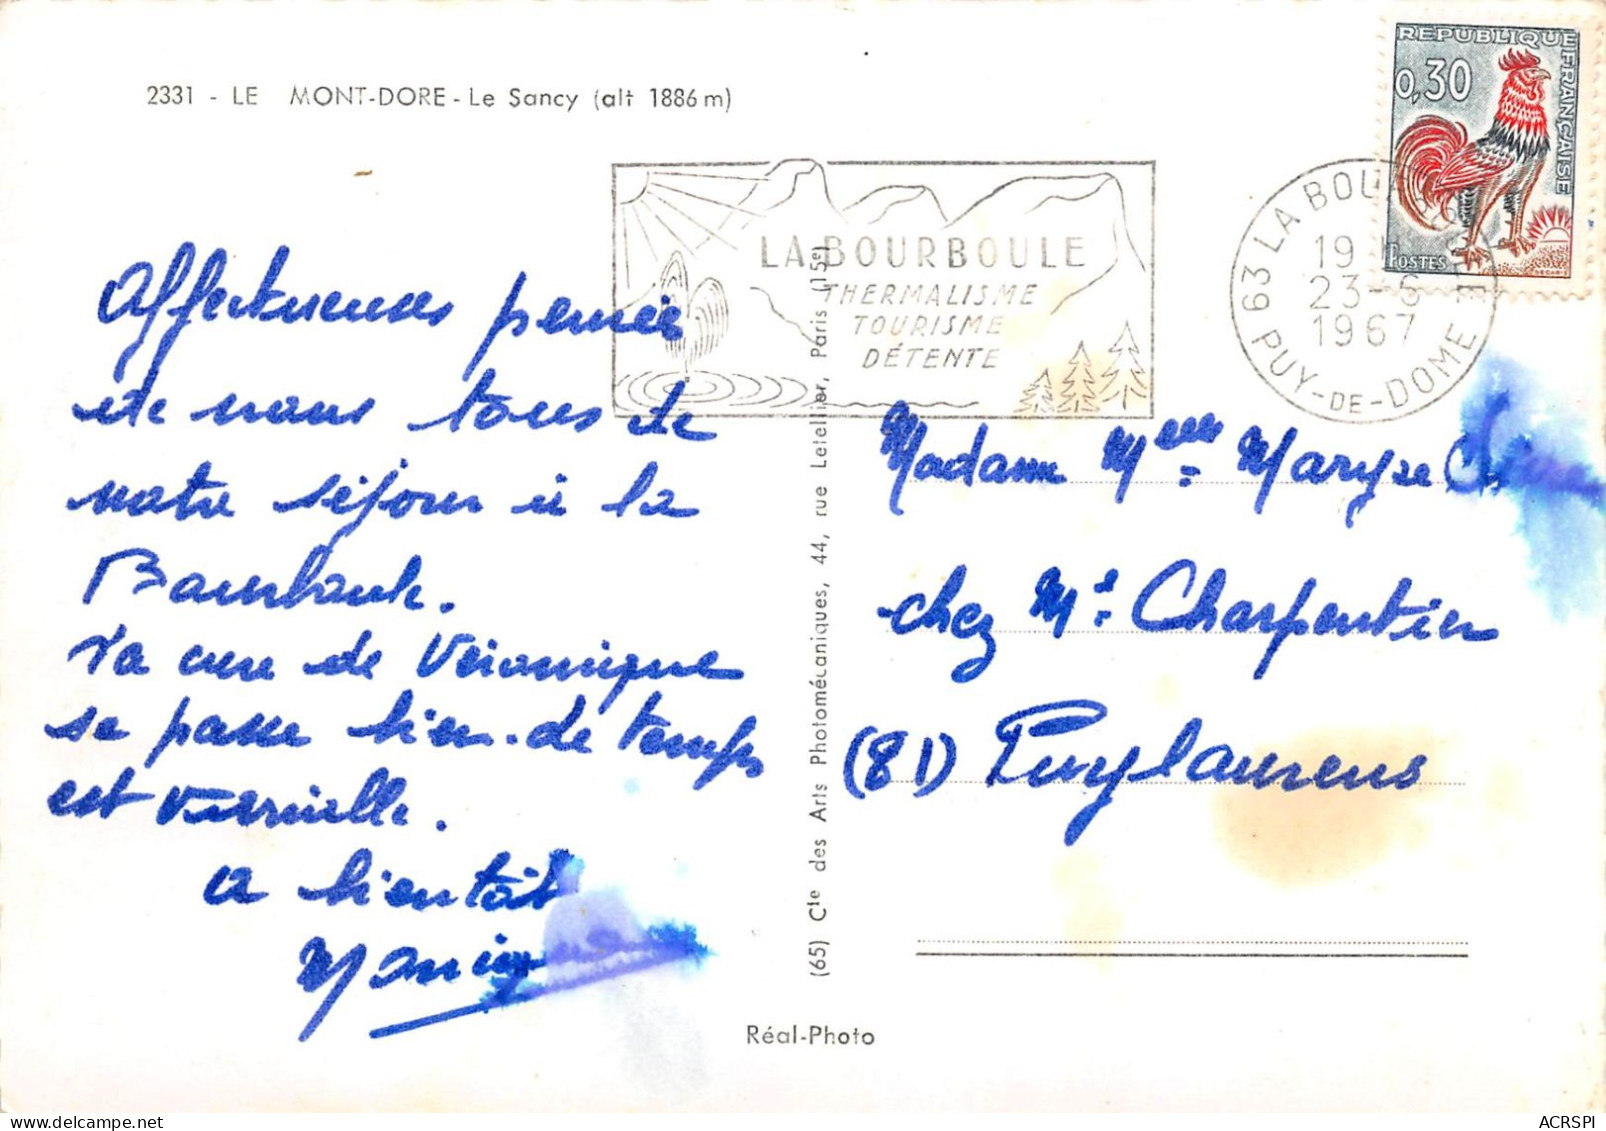 2331 - LE MONT-DORE - Le Sancy (alt 1886 m)
REPUBLIQUE FRANÇAISE
0,30
POSTES
LA BOURBOULE
THERMALISME
TOURISME
DÉTENTE
63 LA BOU
19
23-6
1967
PUY-DE-DOME
Affectueuses pensée
de nous tous de
notre séjour à la
Bourboule.
La cure de Véronique
se passe bien. de temps
est vermeille.
a bientôt
Madame Melle Maryse
chez Mr. Charpentier
(81) Puylaurens
(65) Cie des Arts Photomécaniques, 44, rue Letellier, Paris (15e)
Réal-Photo
ACRSPI